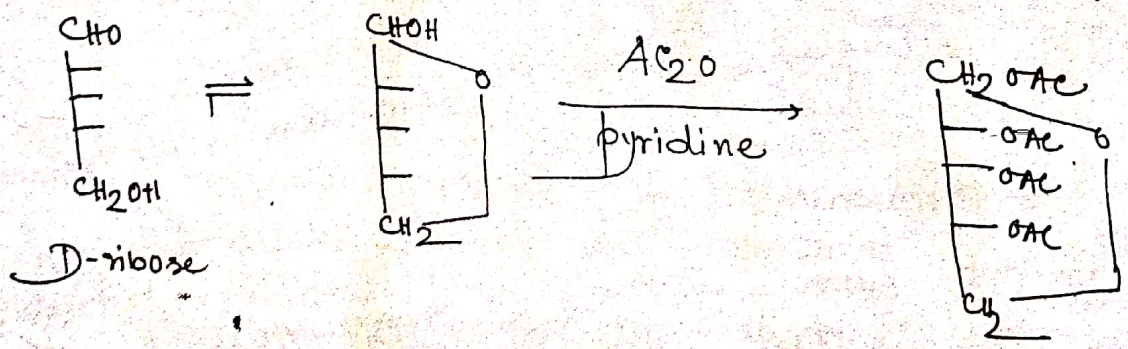 CHO
CH2OH
D-ribose
CHOH
O
CH2
AC2O
pyridine
CH2 OAC
OAC
O
OAC
OAC
CH2